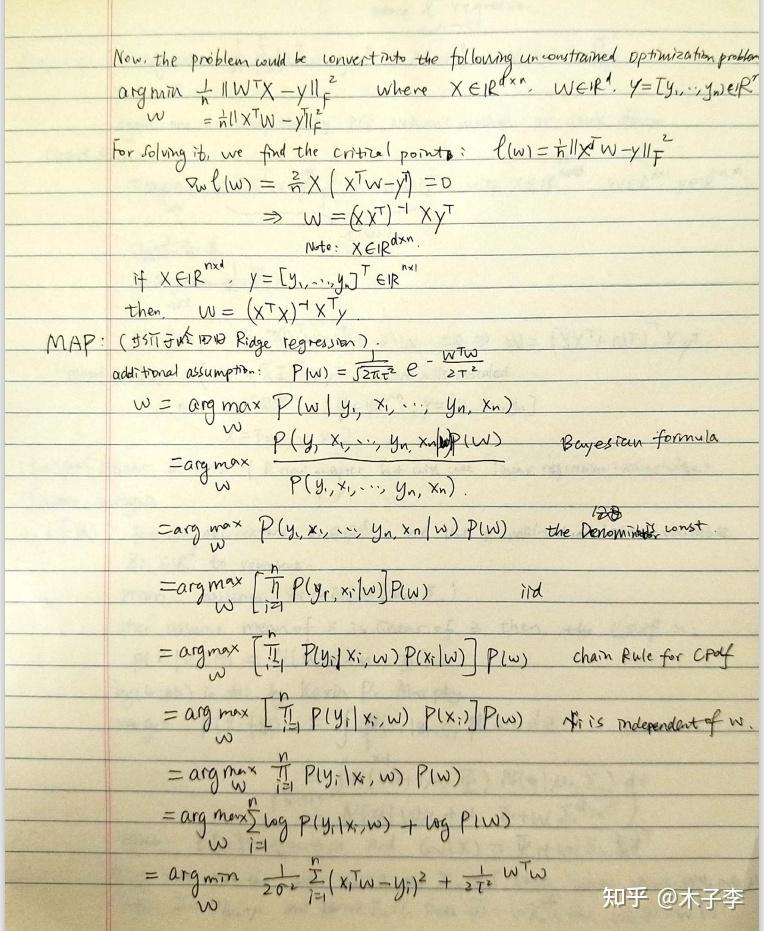 Now, the problem would be convert into the following unconstrained optimization problem
argmin_w 1/n ||WᵀX − y||_F² where X∈ℝ^{d×n}, W∈ℝ^d, y=[y₁,..,yₙ]∈ℝⁿ
= 1/n ||XᵀW − yᵀ||_F²
For solving it, we find the critical point: l(w) = 1/n ||XᵀW − y||_F²
∇_w l(w) = 2/n X (XᵀW − yᵀ) = 0
⇒ W = (XXᵀ)⁻¹ Xyᵀ
Note: X∈ℝ^{d×n}.
if X∈ℝ^{n×d}, y = [y₁,...,yₙ]ᵀ ∈ℝ^{n×1}
then, W = (XᵀX)⁻¹Xᵀy
MAP: (岭回归 Ridge regression).
additional assumption: P(w) = 1/√(2πτ²) e^{−WᵀW/2τ²}
W = argmax_w P(w | y₁, x₁, ..., yₙ, xₙ)
= argmax_w P(y₁ x₁, ..., yₙ, xₙ|w)P(w) / P(y₁, x₁, ..., yₙ, xₙ). Bayesian formula
= argmax_w P(y₁, x₁, ..., yₙ, xₙ | w) P(w) the Denominator is const.
= argmax_w [∏_{i=1}^n P(yᵢ, xᵢ|w)] P(w) iid
= argmax_w [∏_{i=1}^n P(yᵢ|xᵢ, w) P(xᵢ|w)] P(w) chain Rule for CPdf
= argmax_w [∏_{i=1}^n P(yᵢ|xᵢ, w) P(xᵢ)] P(w) xᵢ is independent of w.
= argmax_w ∏_{i=1}^n P(yᵢ|xᵢ, w) P(w)
= argmax_w ∑_{i=1}^n log P(yᵢ|xᵢ, w) + log P(w)
= argmin_w 1/2σ² ∑_{i=1}^n (xᵢᵀw − yᵢ)² + 1/2τ² wᵀw
知乎 @木子李